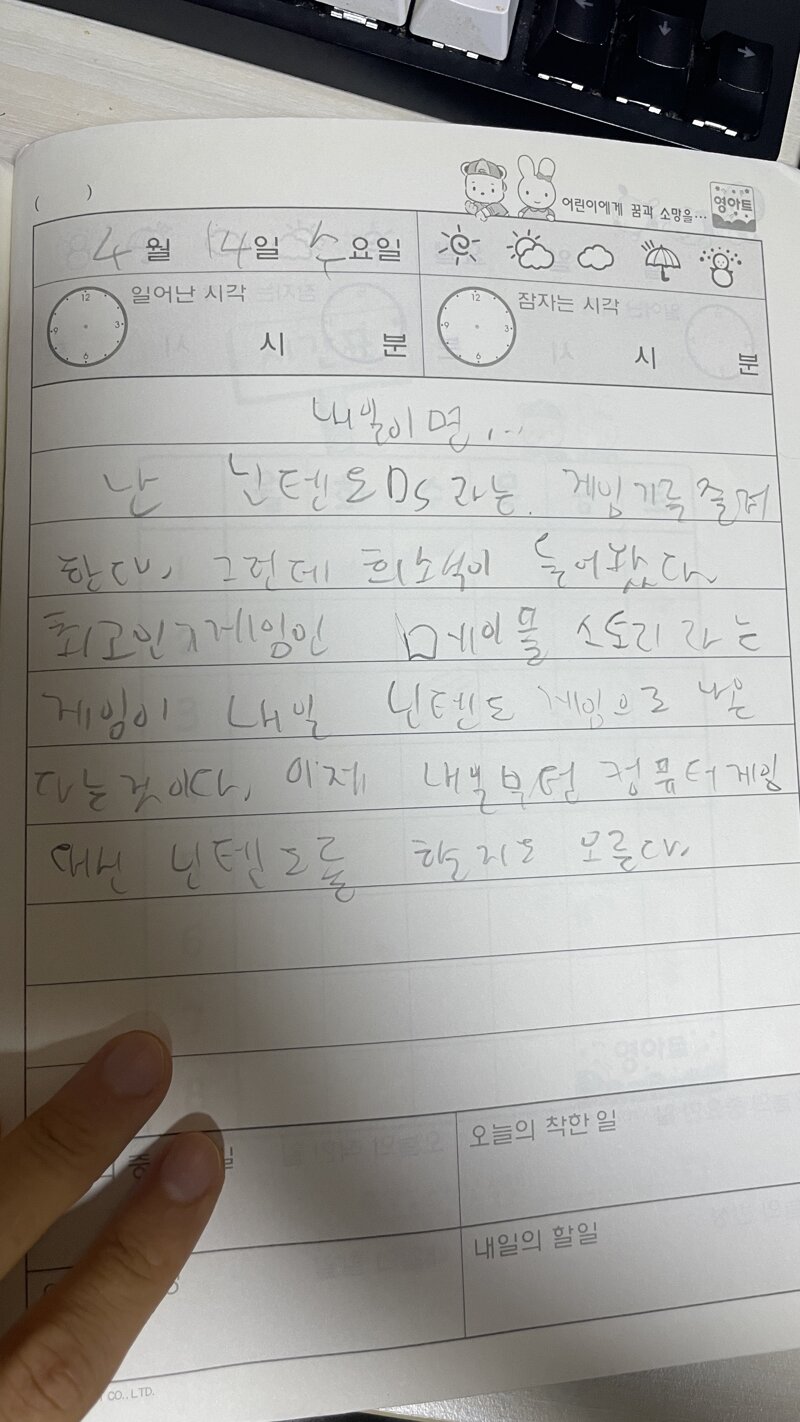 ( )
어린이에게 꿈과 소망을... 영아트
4월 14일 수요일
일어난 시각 잠자는 시각
12 3 6 9 12 3 6 9
시 분 시 분
내일이면...
난 닌텐도DS라는. 게임기를 즐겨
한다. 그런데 희소식이 들어왔다
최고인기게임인 메이플 스토리라는
게임이 내일 닌텐도 게임으로 나온
다는것이다. 이제 내일부턴 컴퓨터게임
대신 닌텐도를 할지도 모른다.
오늘의 착한 일
내일의 할일
CO.,LTD.